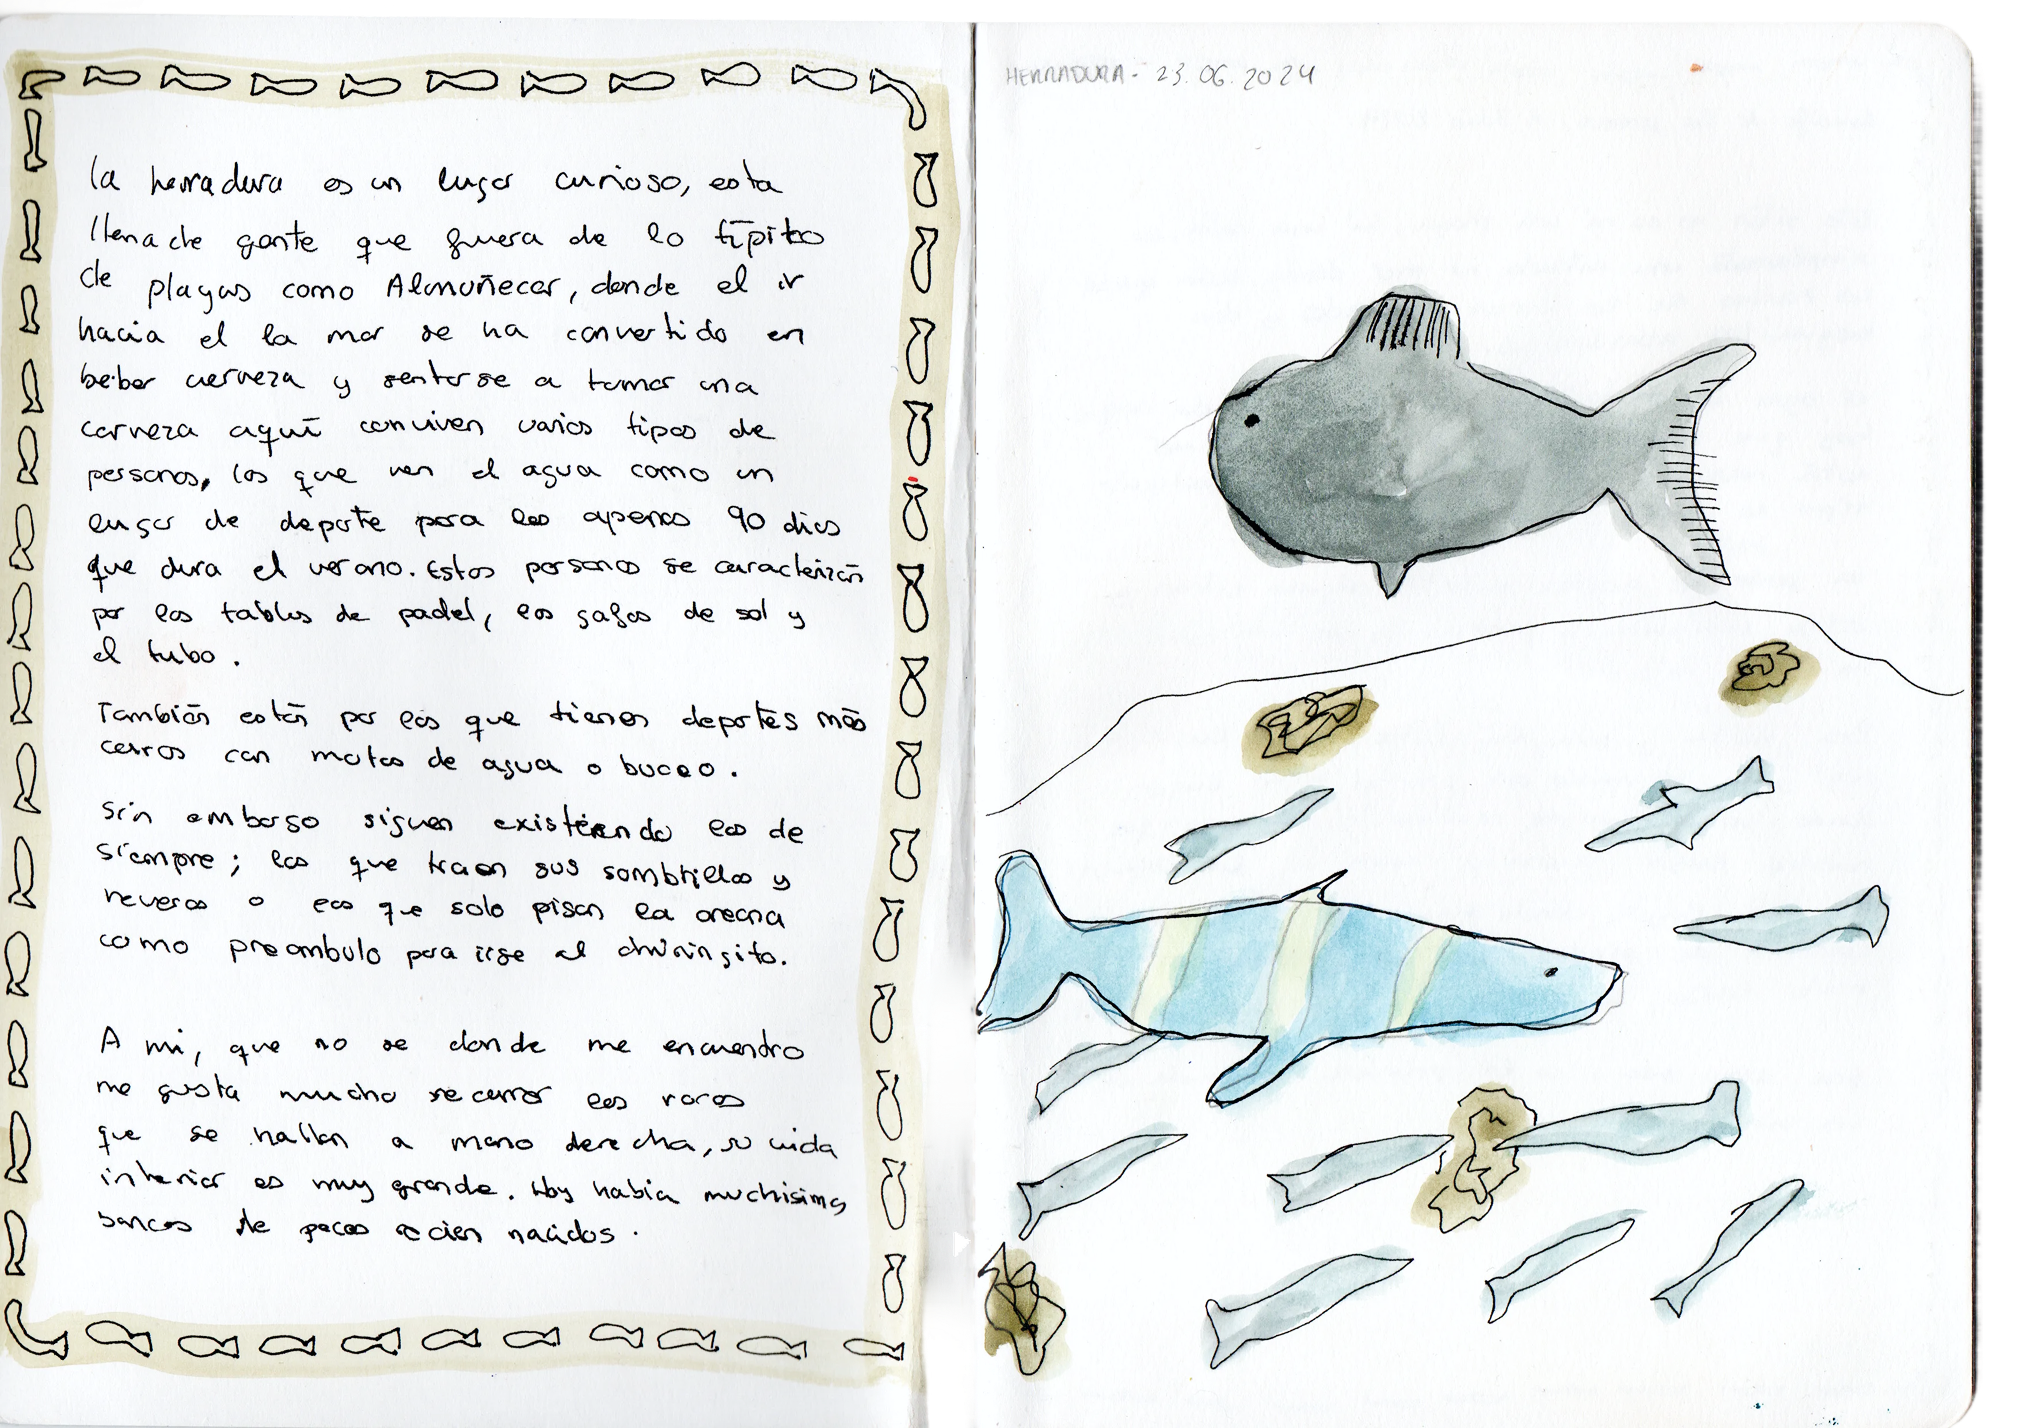 la herradura es un lugar curioso, esta
llena de gente que fuera de lo típito
de playas como Almuñecar, donde el ir
hacia el la mar se ha convertido en
beber cerveza y sentarse a tomar una
cerveza aquí conviven varios tipos de
personas, los que ven el agua como un
lugar de deporte para los apenas 90 dias
que dura el verano. Estas personas se caracterizán
por las tablas de padel, las gafas de sol y
el tubo.
También están por los que tienen deportes más
caros con motos de agua o buceo.
Sin embargo siguen existiendo los de
siempre; los que traen sus sombrillas y
neveras o los que solo pisan la arena
como preambulo para irse al chiringito.
A mi, que no se donde me encuentro
me gusta mucho recorrer las rocas
que se hallan a mano derecha, su vida
interior es muy grande. Hoy habia muchisimos
bancos de peces recien nacidos.
HERRADURA - 23.06.2024